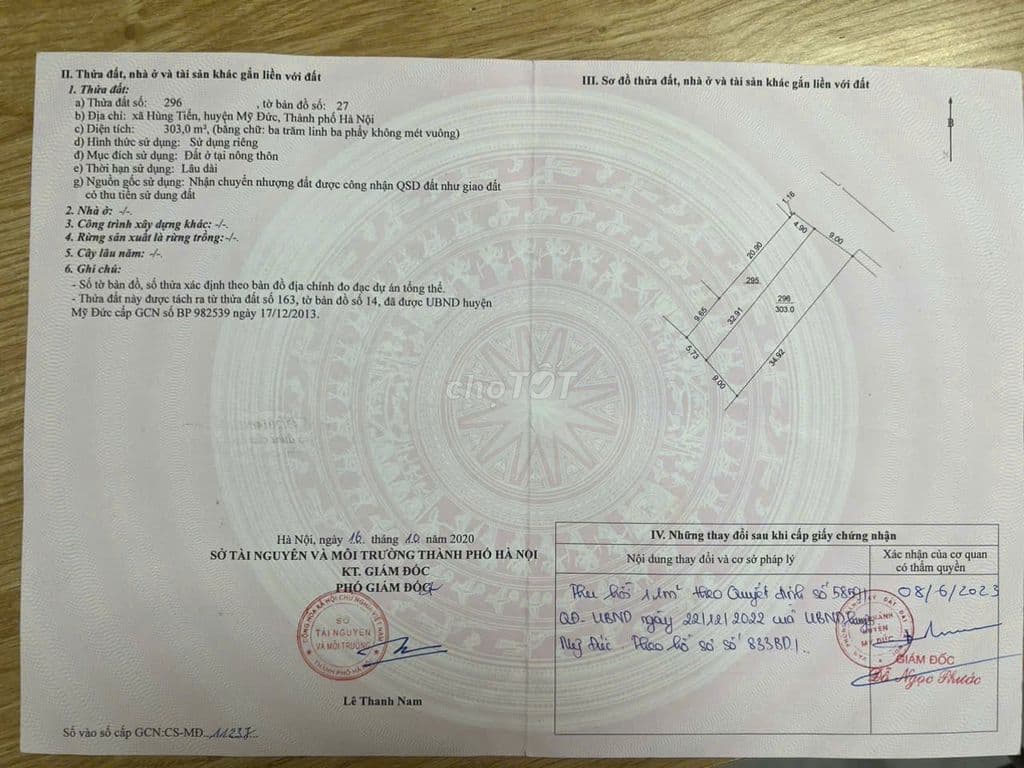 II. Thửa đất, nhà ở và tài sản khác gắn liền với đất
1. Thửa đất:
a) Thửa đất số: 296 , tờ bản đồ số: 27
b) Địa chỉ: xã Hùng Tiến, huyện Mỹ Đức, Thành phố Hà Nội
c) Diện tích: 303,0 m², (bằng chữ: ba trăm linh ba phẩy không mét vuông)
d) Hình thức sử dụng: Sử dụng riêng
đ) Mục đích sử dụng: Đất ở tại nông thôn
e) Thời hạn sử dụng: Lâu dài
g) Nguồn gốc sử dụng: Nhận chuyển nhượng đất được công nhận QSD đất như giao đất
có thu tiền sử dung đất
2. Nhà ở: -/-.
3. Công trình xây dựng khác: -/-.
4. Rừng sản xuất là rừng trồng:-/-.
5. Cây lâu năm: -/-.
6. Ghi chú:
- Số tờ bản đồ, số thửa xác định theo bản đồ địa chính đo đạc dự án tổng thể.
- Thửa đất này được tách ra từ thửa đất số 163, tờ bản đồ số 14, đã được UBND huyện
Mỹ Đức cấp GCN số BP 982539 ngày 17/12/2013.
Hà Nội, ngày 16 tháng 10 năm 2020
SỞ TÀI NGUYÊN VÀ MÔI TRƯỜNG THÀNH PHỐ HÀ NỘI
KT. GIÁM ĐỐC
PHÓ GIÁM ĐỐC
CỘNG HÒA XÃ HỘI CHỦ NGHĨA VIỆT NAM
SỞ
TÀI NGUYÊN
VÀ MÔI TRƯỜNG
THÀNH PHỐ HÀ
Lê Thanh Nam
Số vào sổ cấp GCN:CS-MĐ..11238..
III. Sơ đồ thửa đất, nhà ở và tài sản khác gắn liền với đất
B
1.16
4.90
9.00
20.90
295
296
303.0
9.65
32.91
34.92
5.73
9.00
chợTỐT
IV. Những thay đổi sau khi cấp giấy chứng nhận
Nội dung thay đổi và cơ sở pháp lý
Xác nhận của cơ quan
có thẩm quyền
Thu hồi 1,1m² theo Quyết định số 5859/
QĐ-UBND ngày 22/12/2022 của UBND huyện
Mỹ Đức. Theo hồ sơ số 833BĐ1.
08/6/2023
CHI NHÁNH
HUYỆN
MỸ ĐỨC
GIÁM ĐỐC
Đỗ Ngọc Phước